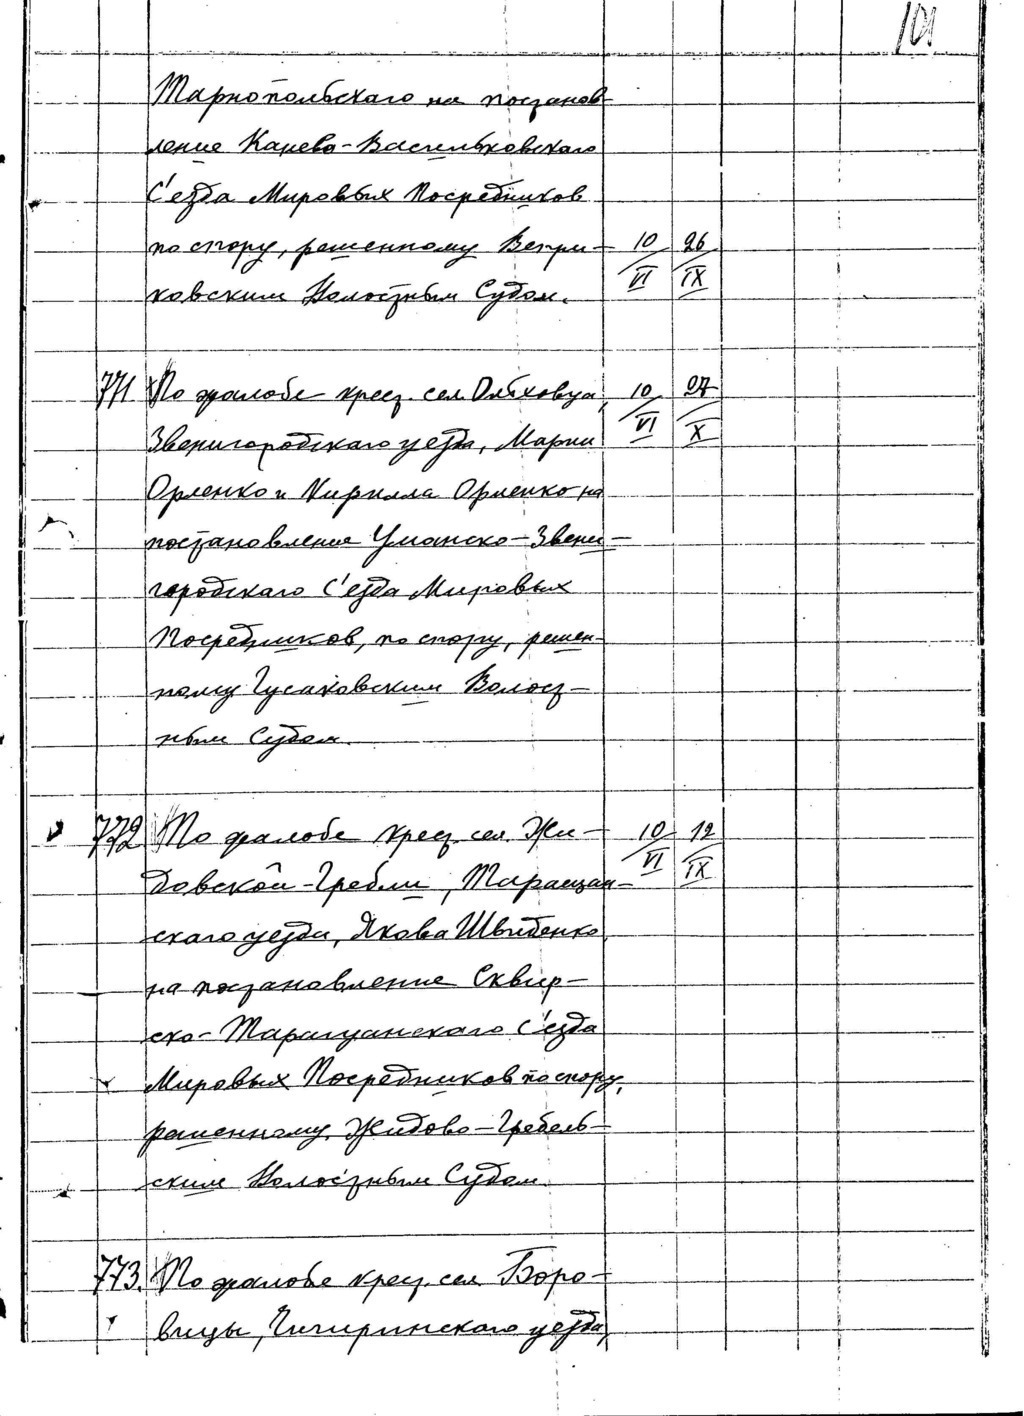 101
Тарнопольскаго на постанов-
ление Канево-Васильковскаго
С'езда Мировых Посредников
по спору, решенному Вепри- 10/VI 26/IX
ковским Волостным Судом.
771 По жалобе крест. сел. Ольховца, 10/VI 27/X
Звенигородскаго уезда, Марии
Орленко и Кирилла Орленко на
постановление Уманско-Звени-
городскаго С'езда Мировых
Посредников, по спору, решен-
ному Гусаковским Волост-
ным Судом.
772 По жалобе крест. сел. Жи- 10/VI 12/IX
довской-Гребли, Таращан-
скаго уезда, Якова Швыденко,
на постановление Сквир-
ско-Таращанскаго С'езда
Мировых Посредников по спору,
решенному Жидово-Гребель-
ским Волостным Судом.
773. По жалобе крест. сел. Боро-
вицы, Чигиринскаго уезда,